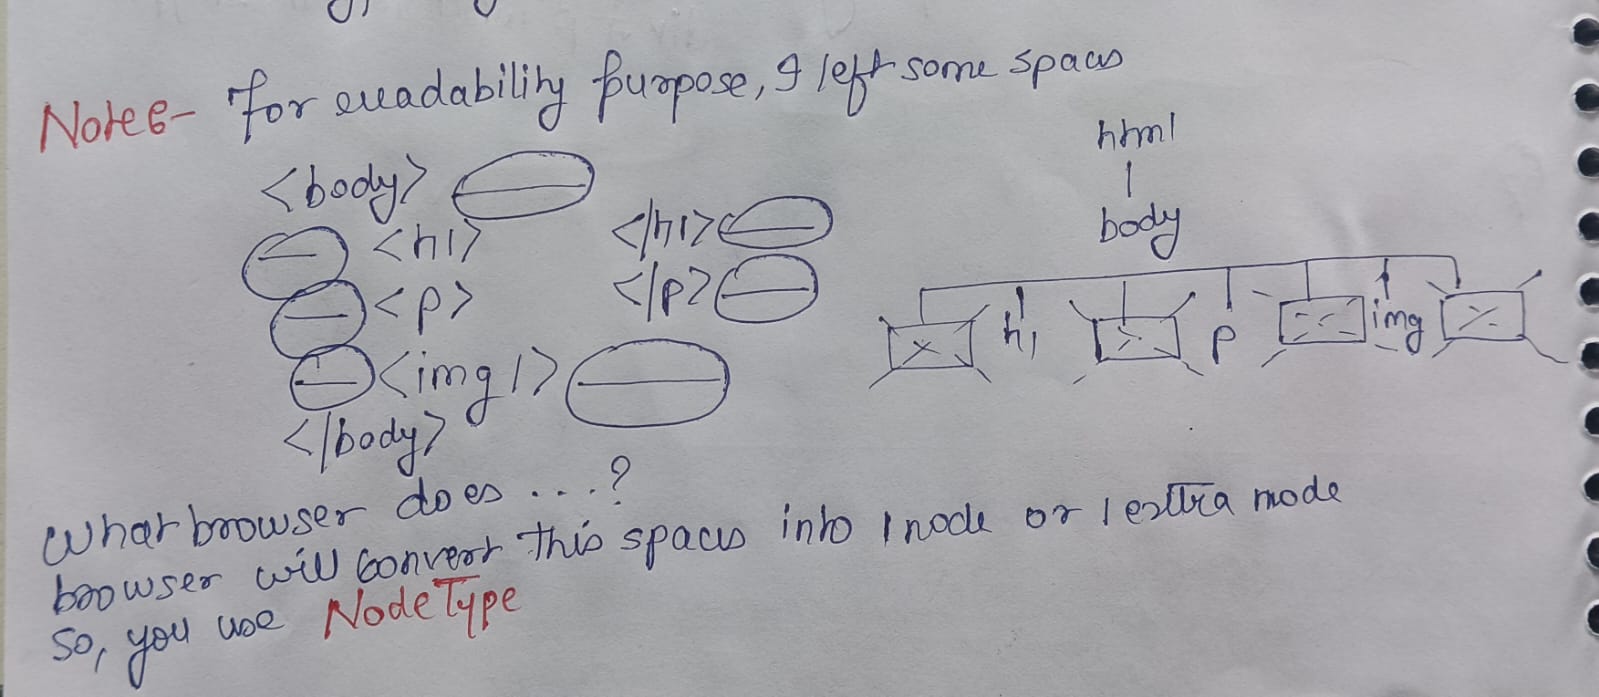 Note:- For readability purpose, I left some spaces
<body>
<h1> </h1>
<p> </p>
<img />
</body>
html
body
h1 p img
What browser does ....?
browser will convert this spaces into 1 node or 1 extra node
So, you use NodeType